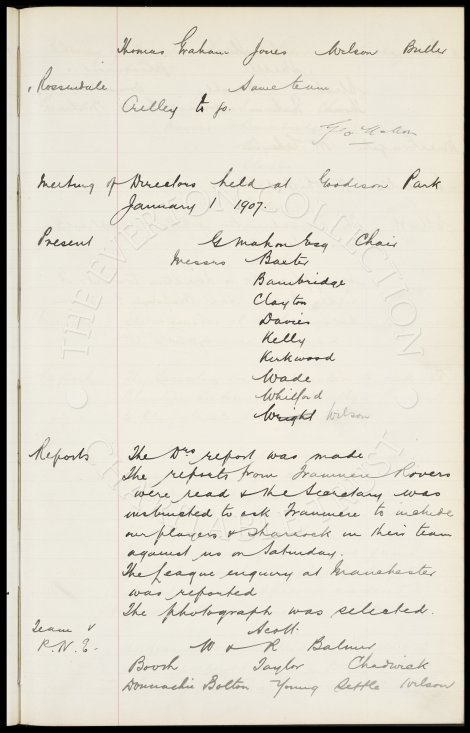 Thomas Graham Jones Wilson Butler
Rossendale. Same team
Crelley to go.
Geo Mahon
Meeting of Directors held at Goodison Park
January 1 1907.
Present G Mahon Esq Chair
Messrs Baxter
Bainbridge
Clayton
Davies
Kelly
Kirkwood
Wade
Whitford
Wright Wilson
Reports The Drs report was made.
The reports from Tranmere Rovers
were read & the Secretary was
instructed to ask Tranmere to include
our players & Sharcock in their team
against us on Saturday.
The League enquiry at Manchester
was reported
The photograph was selected.
Team v Scott
P.N.E. W & R Balmer
Booth Taylor Chadwick
Donnachie Bolton Young Settle Wilson
THE EVERTON COLLECTION